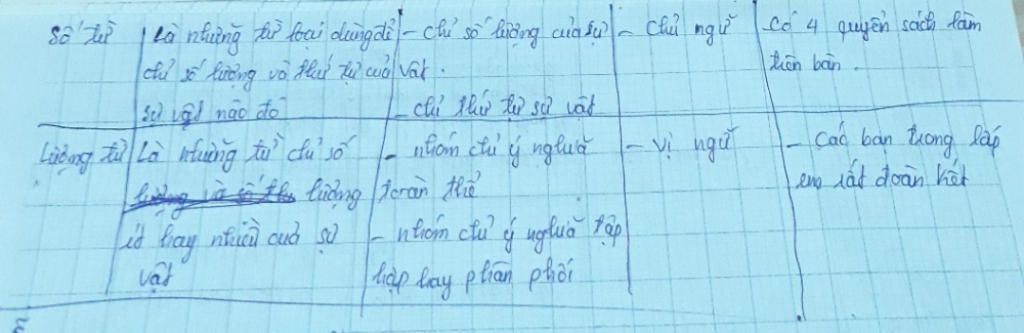 Số từ
là những từ loại dùng để
chỉ số lượng và thứ tự của
sự vật nào đó
- chỉ số lượng của sự
vật.
- chỉ thứ tự sự vật
- Chủ ngữ
Có 4 quyển sách làm
trên bàn.
Lượng từ
Là những từ chỉ số
lượng
ít hay nhiều của sự
vật
- nhóm chỉ ý nghĩa
toàn thể
- nhóm chỉ ý nghĩa tập
hợp hay phân phối
- Vị ngữ
- Các bạn trong lớp
em rất đoàn kết